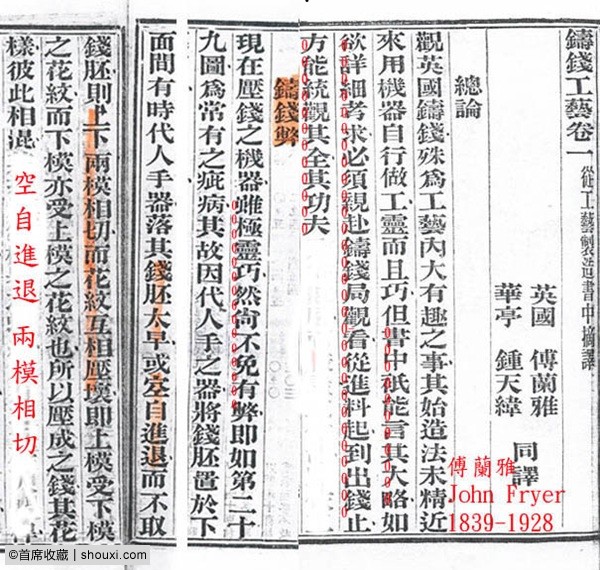 鑄錢工藝卷一 從工藝製造書中摘譯
英國 傅蘭雅
華亭 鍾天緯 同譯
總論
觀英國鑄錢殊爲工藝內大有趣之事其始造法未精近
來用機器自行做工靈而且巧但書中祇能言其大略如
欲詳細考求必須親赴鑄錢局觀看從進料起到出錢止
方能統觀其全其功夫
鑄錢弊
現在壓錢之機器雖極靈巧然尙不免有弊卽如第二十
九圖爲常有之疵病其故因代人手之器將錢胚置於下
面間有時代人手器落其錢胚太早或空自進退而不取
錢胚則上下兩模相切而花紋互相壓壞卽上模受下模
之花紋而下模亦受上模之花紋也所以壓成之錢其花
樣彼此相混
空自進退 兩模相切
傅蘭雅
John Fryer
1839-1928
©首席收藏 | shouxi.com